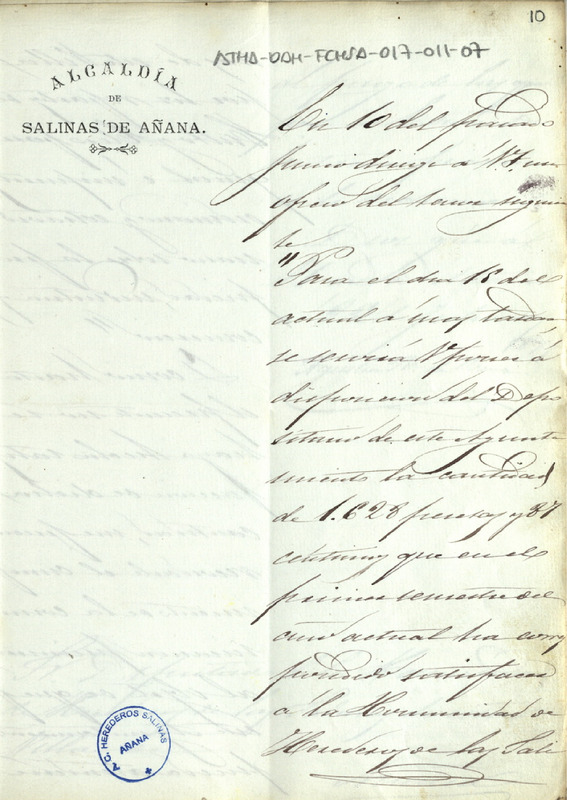 10
ATHA-DAH-FCHSA-017-011-07
ALCALDÍA
DE
SALINAS DE AÑANA.
En 10 del pasado
Junio dirigí á V. una
oficio del tenor siguien
te
"Para el dia 15 del
actual á muy tardar
se servirá V poner á
disposicion del Depo
sitario de este Ayunta
miento la cantidad
de 1.628 pesetas y 87
centimos que en el
primer semestre del
año actual ha corres
pondido satisfacer
á la Comunidad de
Herederos de las Sali
C. HEREDEROS SALINAS
AÑANA